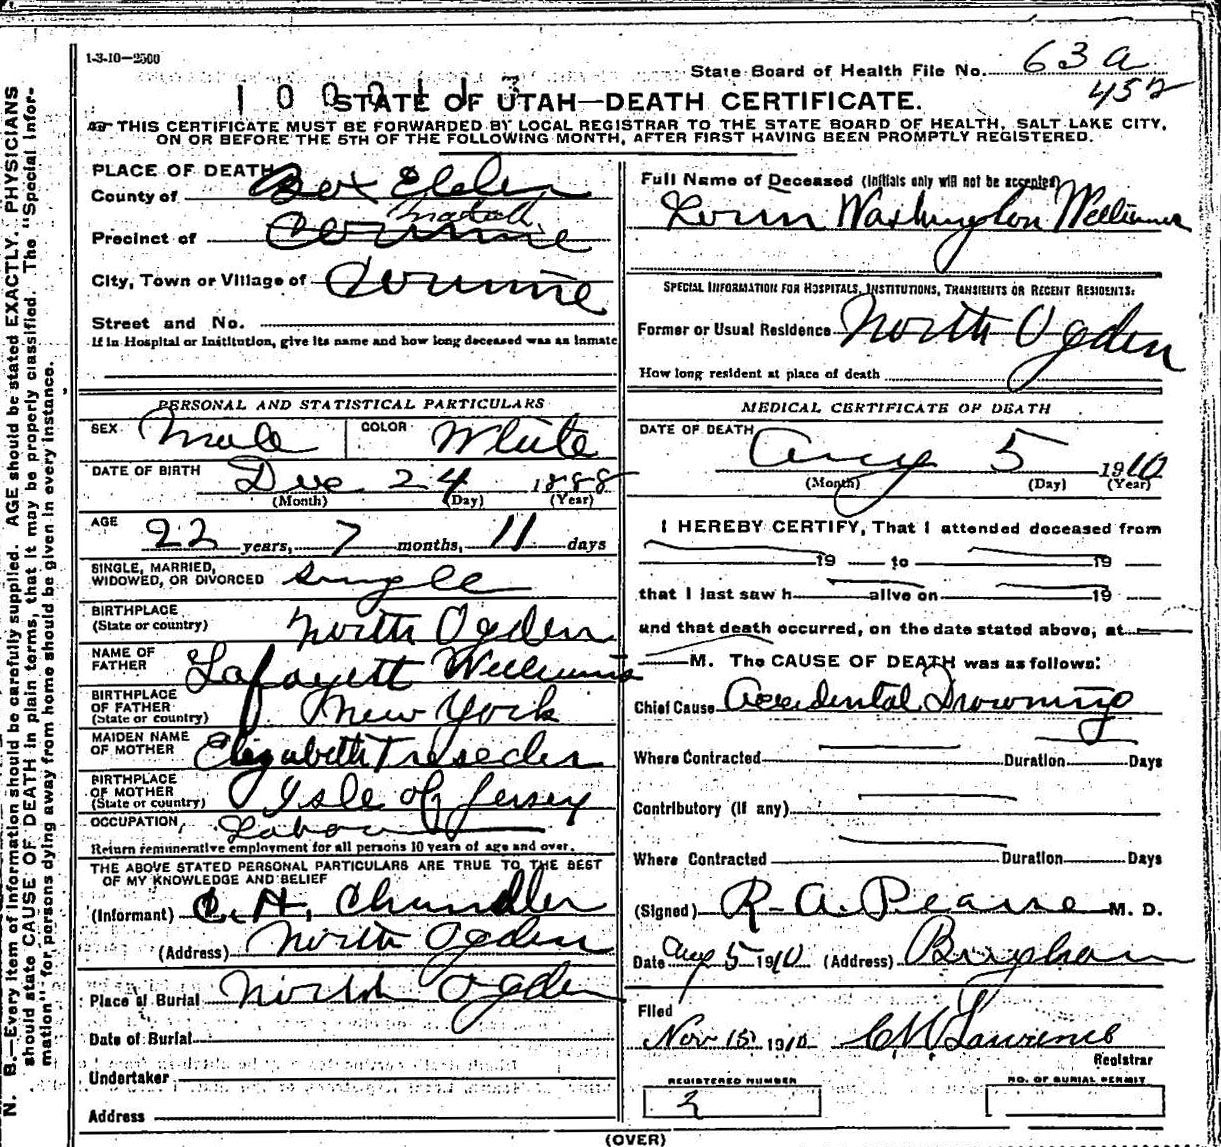 1-3-10—2500
State Board of Health File No. 63 a
452
STATE OF UTAH—DEATH CERTIFICATE.
THIS CERTIFICATE MUST BE FORWARDED BY LOCAL REGISTRAR TO THE STATE BOARD OF HEALTH, SALT LAKE CITY,
ON OR BEFORE THE 5TH OF THE FOLLOWING MONTH, AFTER FIRST HAVING BEEN PROMPTLY REGISTERED.
PLACE OF DEATH
County of Box Elder
Precinct of Corinne
City, Town or Village of Corinne
Street and No.
If in Hospital or Institution, give its name and how long deceased was an inmate
PERSONAL AND STATISTICAL PARTICULARS
SEX Male COLOR White
DATE OF BIRTH Dec 24 1888
(Month) (Day) (Year)
AGE
22 years, 7 months, 11 days
SINGLE, MARRIED,
WIDOWED, OR DIVORCED single
BIRTHPLACE
(State or country) North Ogden
NAME OF
FATHER Lafayett Williams
BIRTHPLACE
OF FATHER
(State or country) New York
MAIDEN NAME
OF MOTHER Elizabeth Treseder
BIRTHPLACE
OF MOTHER
(State or country) Isle of Jersey
OCCUPATION, Labor
Return remunerative employment for all persons 10 years of age and over.
THE ABOVE STATED PERSONAL PARTICULARS ARE TRUE TO THE BEST
OF MY KNOWLEDGE AND BELIEF
(Informant) C. H. Chandler
(Address) North Ogden
Place of Burial North Ogden
Date of Burial
Undertaker
Address
Full Name of Deceased (Initials only will not be accepted)
Lorin Washington Williams
SPECIAL INFORMATION FOR HOSPITALS, INSTITUTIONS, TRANSIENTS OR RECENT RESIDENTS:
Former or Usual Residence North Ogden
How long resident at place of death
MEDICAL CERTIFICATE OF DEATH
DATE OF DEATH
Aug 5 1910
(Month) (Day) (Year)
I HEREBY CERTIFY, That I attended deceased from
19 to 19
that I last saw h alive on 19
and that death occurred, on the date stated above, at
M. The CAUSE OF DEATH was as follows:
Chief Cause Accidental Drowning
Where Contracted Duration Days
Contributory (if any)
Where Contracted Duration Days
(Signed) R. A. Pearse M. D.
Date Aug 5 1910 (Address) Brigham
Filed
Nov 15 1910 C W Lawrence
Registrar
REGISTERED NUMBER
2
NO. OF BURIAL PERMIT
(OVER)
N. B.—Every item of Information should be carefully supplied. AGE should be stated EXACTLY. PHYSICIANS
should state CAUSE OF DEATH in plain terms, that it may be properly classified. The "Special Infor-
mation" for persons dying away from home should be given in every instance.